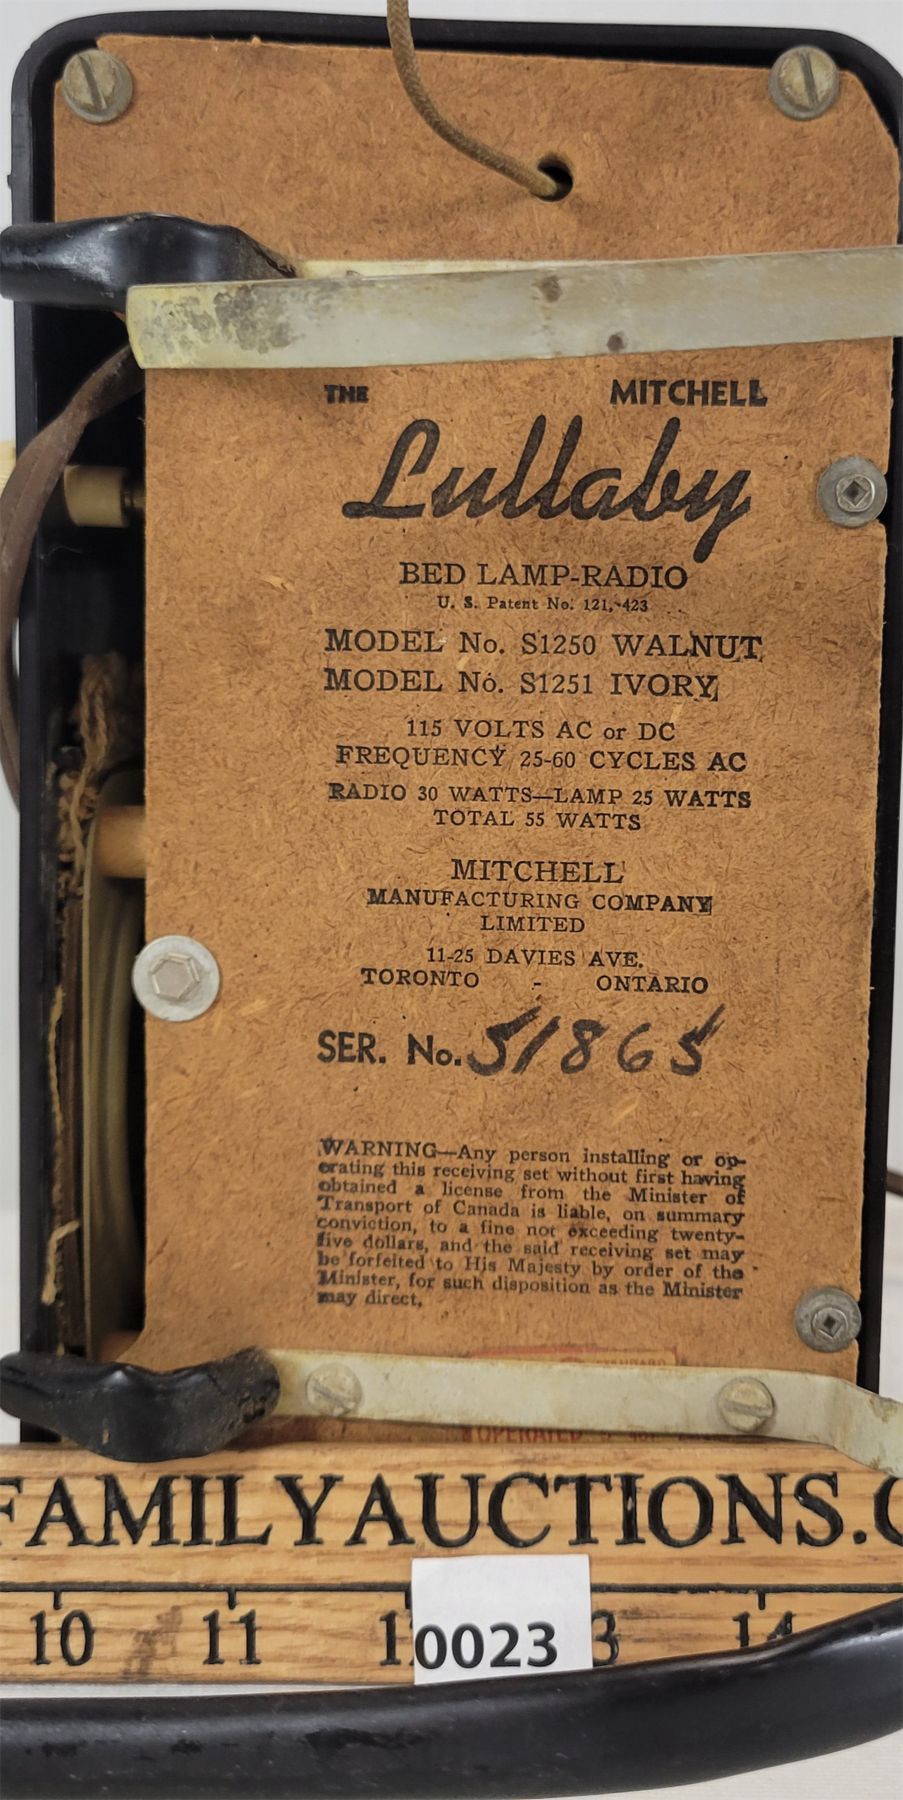 THE MITCHELL
Lullaby
BED LAMP-RADIO
U. S. Patent No. 121,423
MODEL No. S1250 WALNUT
MODEL No. S1251 IVORY
115 VOLTS AC or DC
FREQUENCY 25-60 CYCLES AC
RADIO 30 WATTS—LAMP 25 WATTS
TOTAL 55 WATTS
MITCHELL
MANUFACTURING COMPANY
LIMITED
11-25 DAVIES AVE.
TORONTO - ONTARIO
SER. No. 51865
WARNING—Any person installing or op-
erating this receiving set without first having
obtained a license from the Minister of
Transport of Canada is liable, on summary
conviction, to a fine not exceeding twenty-
five dollars, and the said receiving set may
be forfeited to His Majesty by order of the
Minister, for such disposition as the Minister
may direct.
STANDARD
OPERATED
FAMILYAUCTIONS.C
10 11 1 3 14
0023